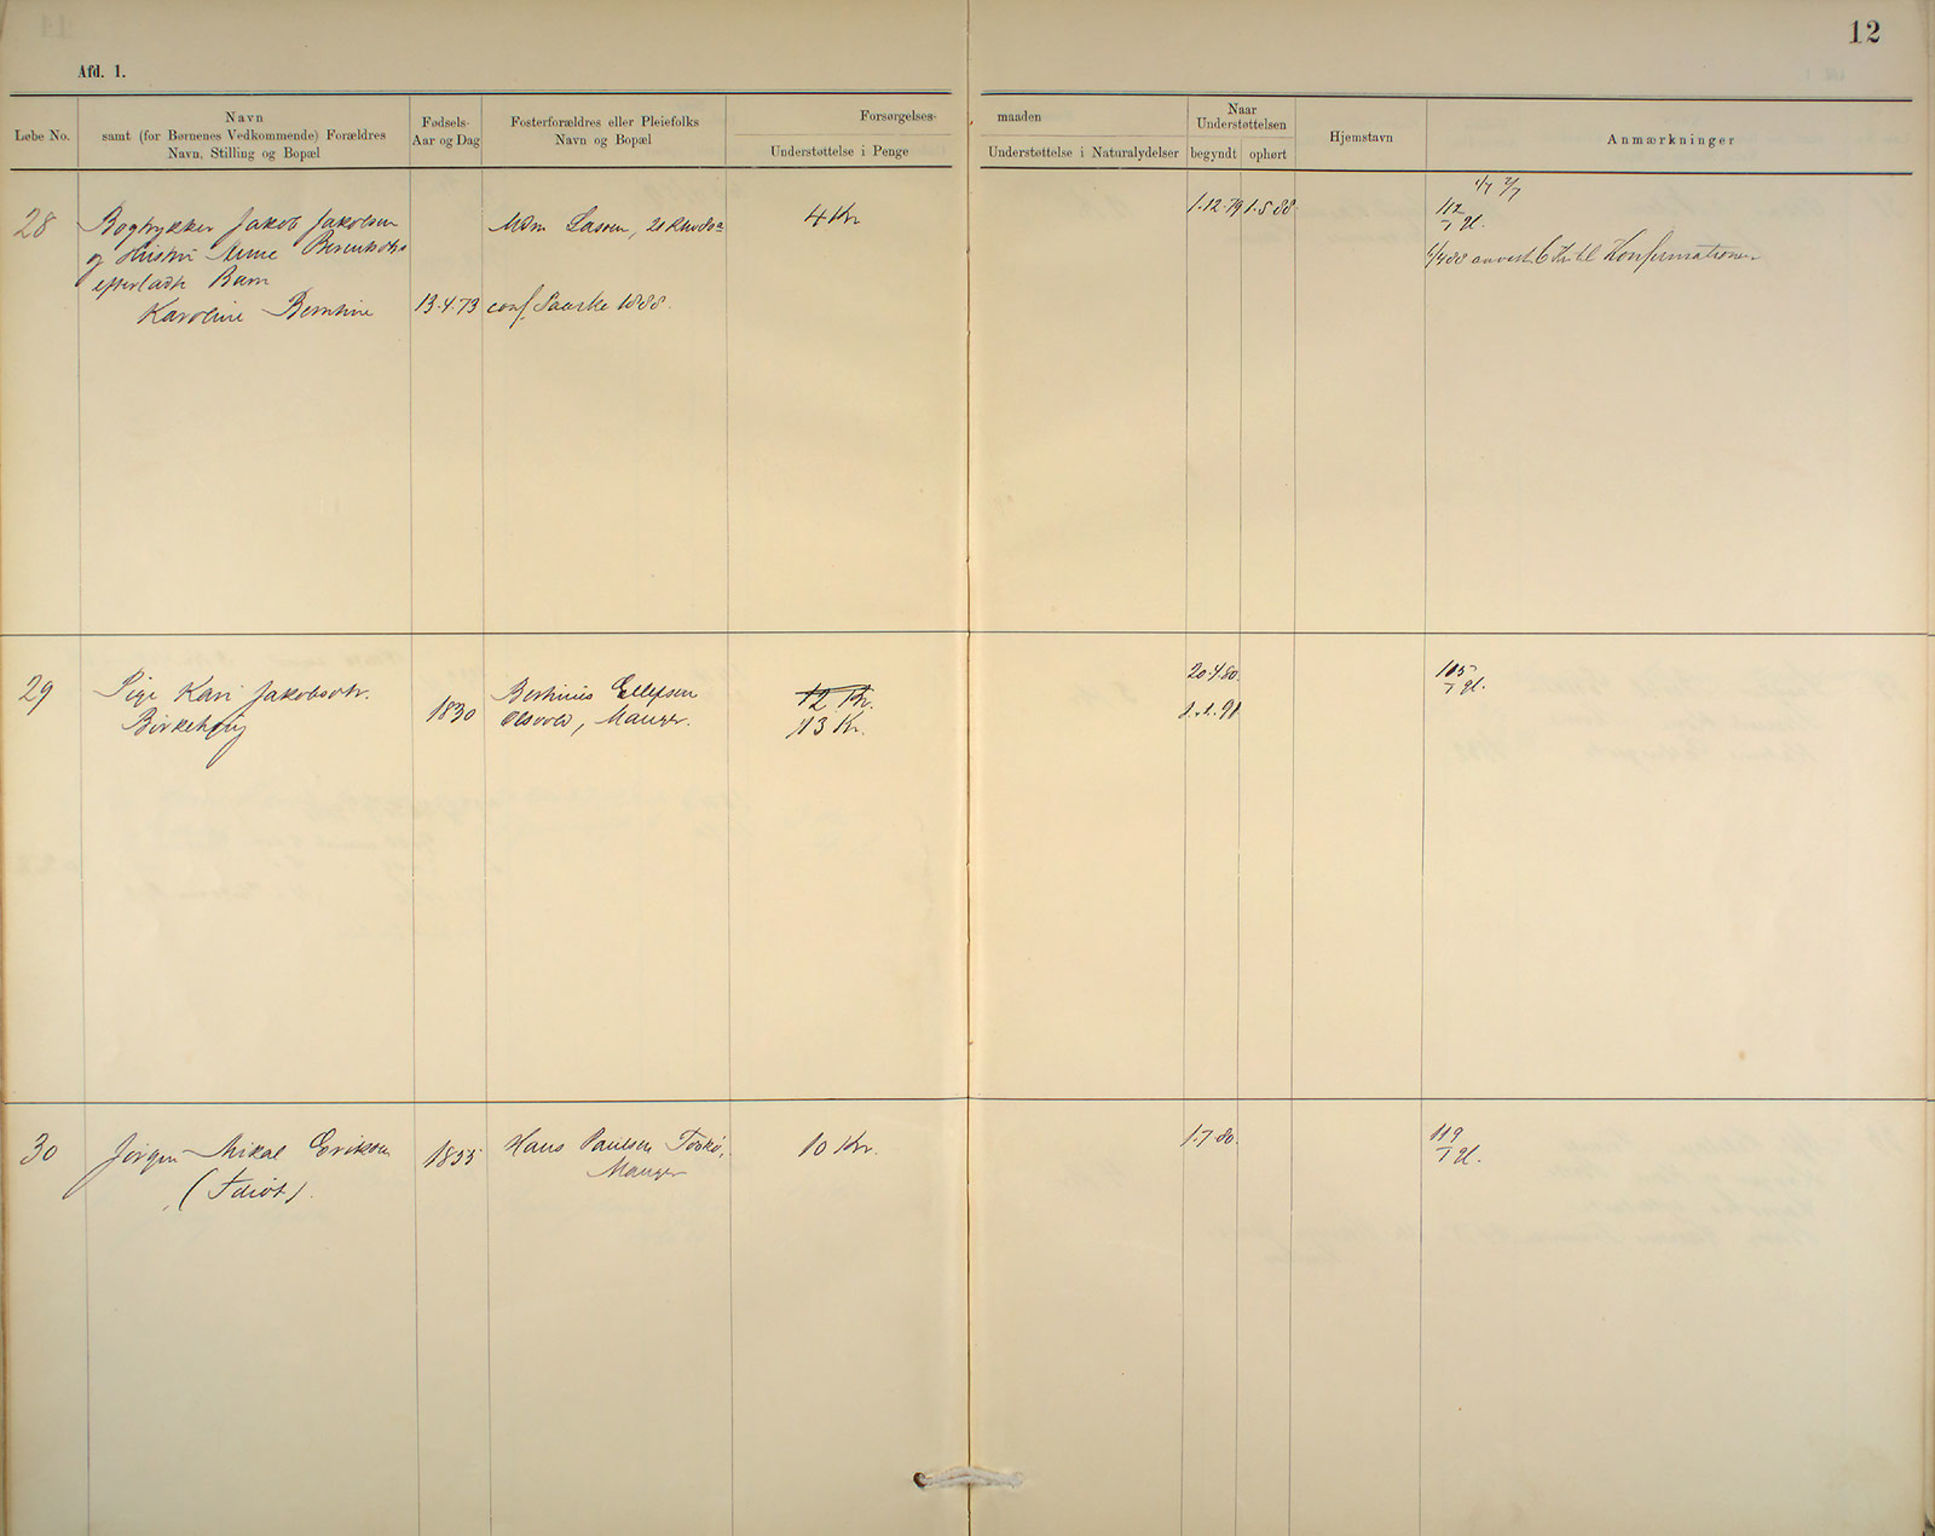 12
Afd. 1.
Løbe No.
Navn
samt (for Børnenes Vedkommende) Forældres
Navn, Stilling og Bopæl
Fødsels-
Aar og Dag
Fosterforældres eller Pleiefolks
Navn og Bopæl
Forsørgelses-
Understøttelse i Penge
maaden
Understøttelse i Naturalydelser
Naar
Understøttelsen
begyndt
ophørt
Hjemstavn
Anmærkninger
28
Bogtrykker Jakob Jakobsen
og Hustru Anne
efterladte Barn
Karoline Berntine
13.4.73
Mdm Lassen, 21
conf. Paaske 1888.
4 Kr
1.12.79
1.5.88.
1/7 2/7
112
1 gl.
1/4 88 anvist 6 Kr til Konfirmationen
29
Pige Kari Jakobsdtr.
Birkehaug
1830
Bertinius Ellefsen
Manger.
12 Kr.
13 Kr.
20.4.80.
1.1.91
105
1 gl.
30
Jørgen Mikal Eriksen
(Idiot).
1855
Hans Paulsen Toskø,
Manger
10 Kr.
1.7.80.
119
1 gl.